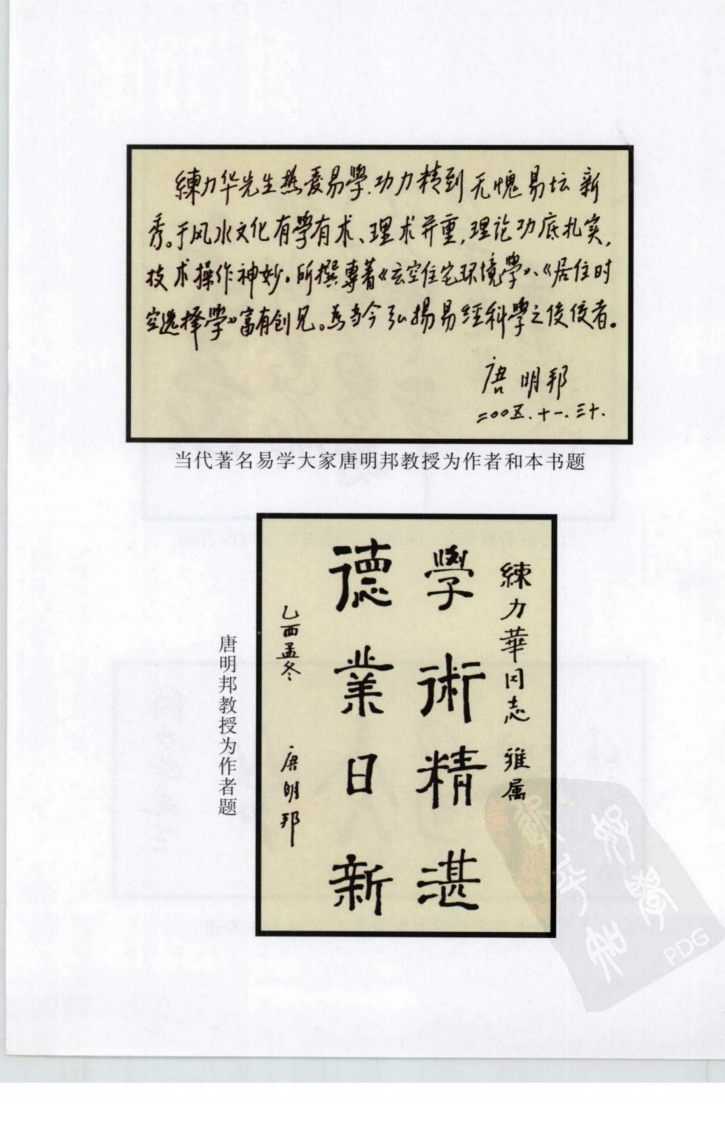 練力华先生热爱易學.功力精到无愧易坛新
秀。于风水文化有學有术、理术并重,理论功底扎实,
技术操作神妙。所撰專著《玄空住宅环境學》、《居住时
空选择學》富有创见。为当今弘揚易经科學之佼佼者。
唐明邦
二00五.十一.三十.
当代著名易学大家唐明邦教授为作者和本书题
練力華同志 雅属
學術精湛
德業日新
乙酉孟冬 唐明邦
唐明邦教授为作者题
PDG